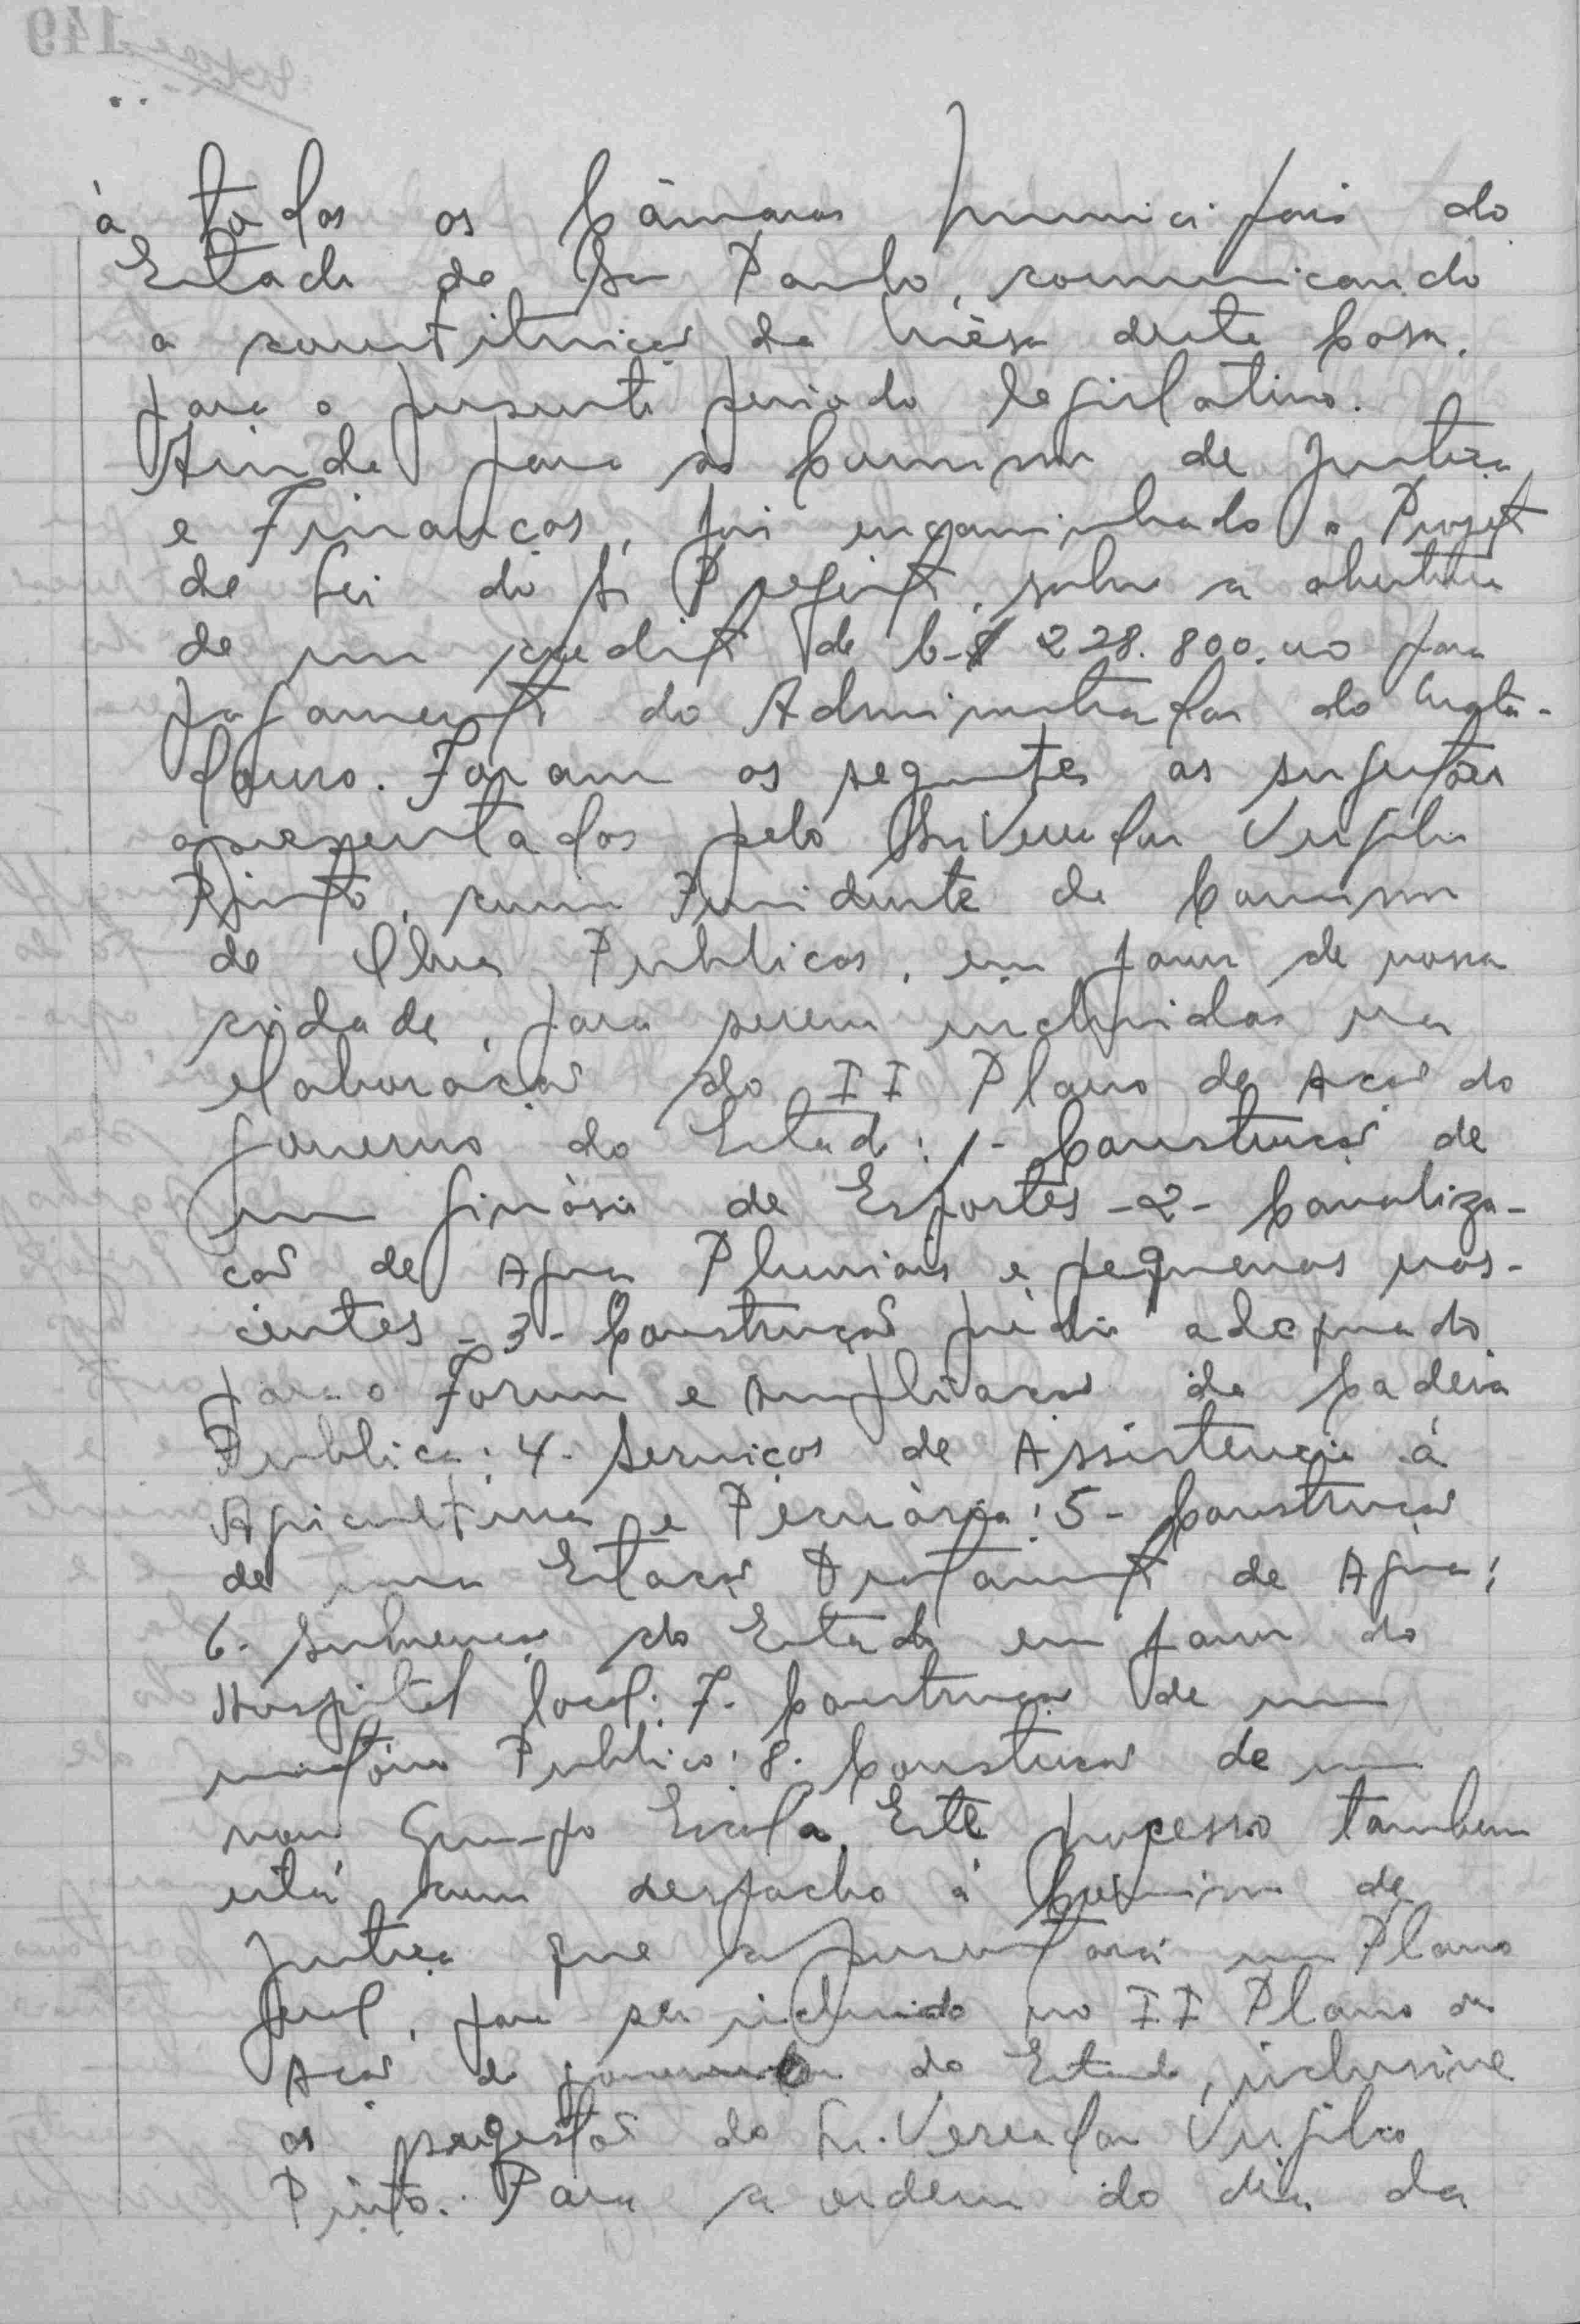 à todas as Câmaras Municipais do
Estado de São Paulo, comunicando
a constituição da Mêsa desta Casa,
para o presente periodo legislativo.
Ainda para as Comissão de Justiça
e Finanças, foi encaminhado o Projeto
de Lei do Sr Prefeito, sobre a abertura
de um credito de Cr$ 228.800,00 para
pagamento do Administrador do Mata-
douro. Foram os seguintes as sugestões
apresentadas pelo Sr. Vereador Virgilio
Pinto, como Presidente da Comissão
de Obras Publicas, em favor de nossa
cidade, para serem incluidas na
elaboração do II Plano de Ação do
Governo do Estado: 1- Construção de
um Ginásio de Esportes - 2 - Canaliza-
ção de Agua Pluviais e pequenas nas-
centes - 3 - Construção prédio adequado
para o Forum e Ampliação da Cadeia
Publica: 4. Serviços de Assistencia á
Agricultura e Pecuária: 5 - Construção
de uma Estação Tratamento de Agua:
6. Subvenção do Estado em favor do
Hospital local: 7. Construção de um
mictório Publico: 8. Construção de um
novo Grupo Escola. Este processo tambem
está com despacho á Comissão de
Justiça que apresentará um Plano
Geral, para ser incluido no II Plano de
Ação do do Estado, inclusive
as sugestão do Sr. Vereador Virgilio
Pinto. Para a ordem do dia da